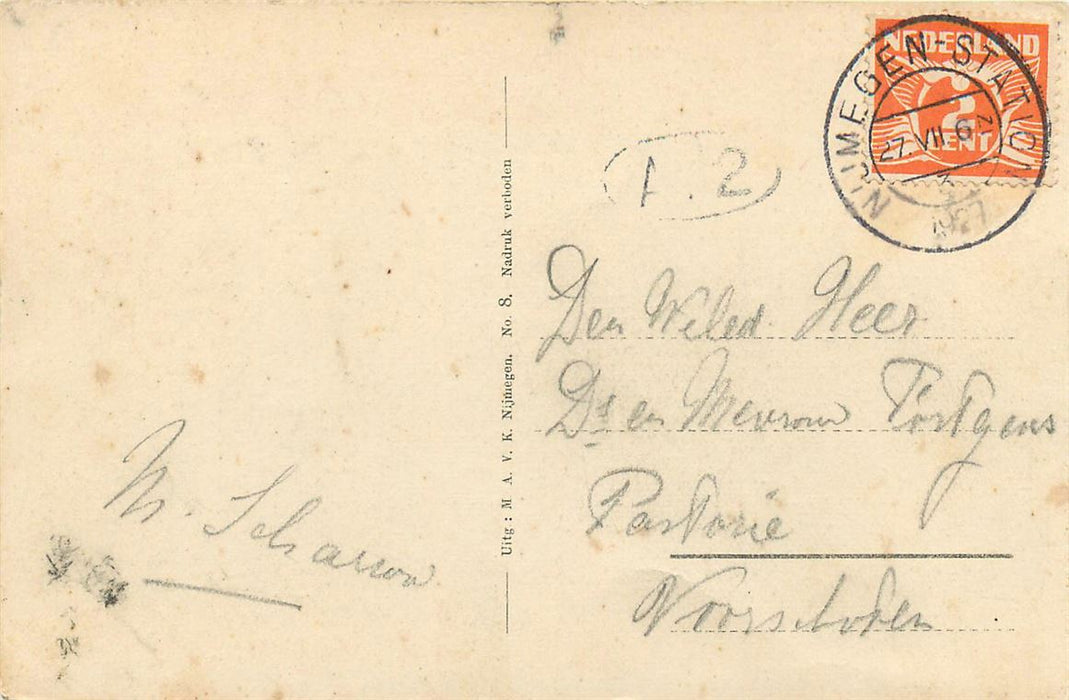 NEDERLAND
2
CENT
NIJMEGEN-STATION
27.VII. 6
1927
A. 2
Den Weled. Heer
Ds en Mevrouw Törtgens
Pastorie
Voorschoten
Uitg: M. A. V. K. Nijmegen. No. 8. Nadruk verboden
M. Scharrow